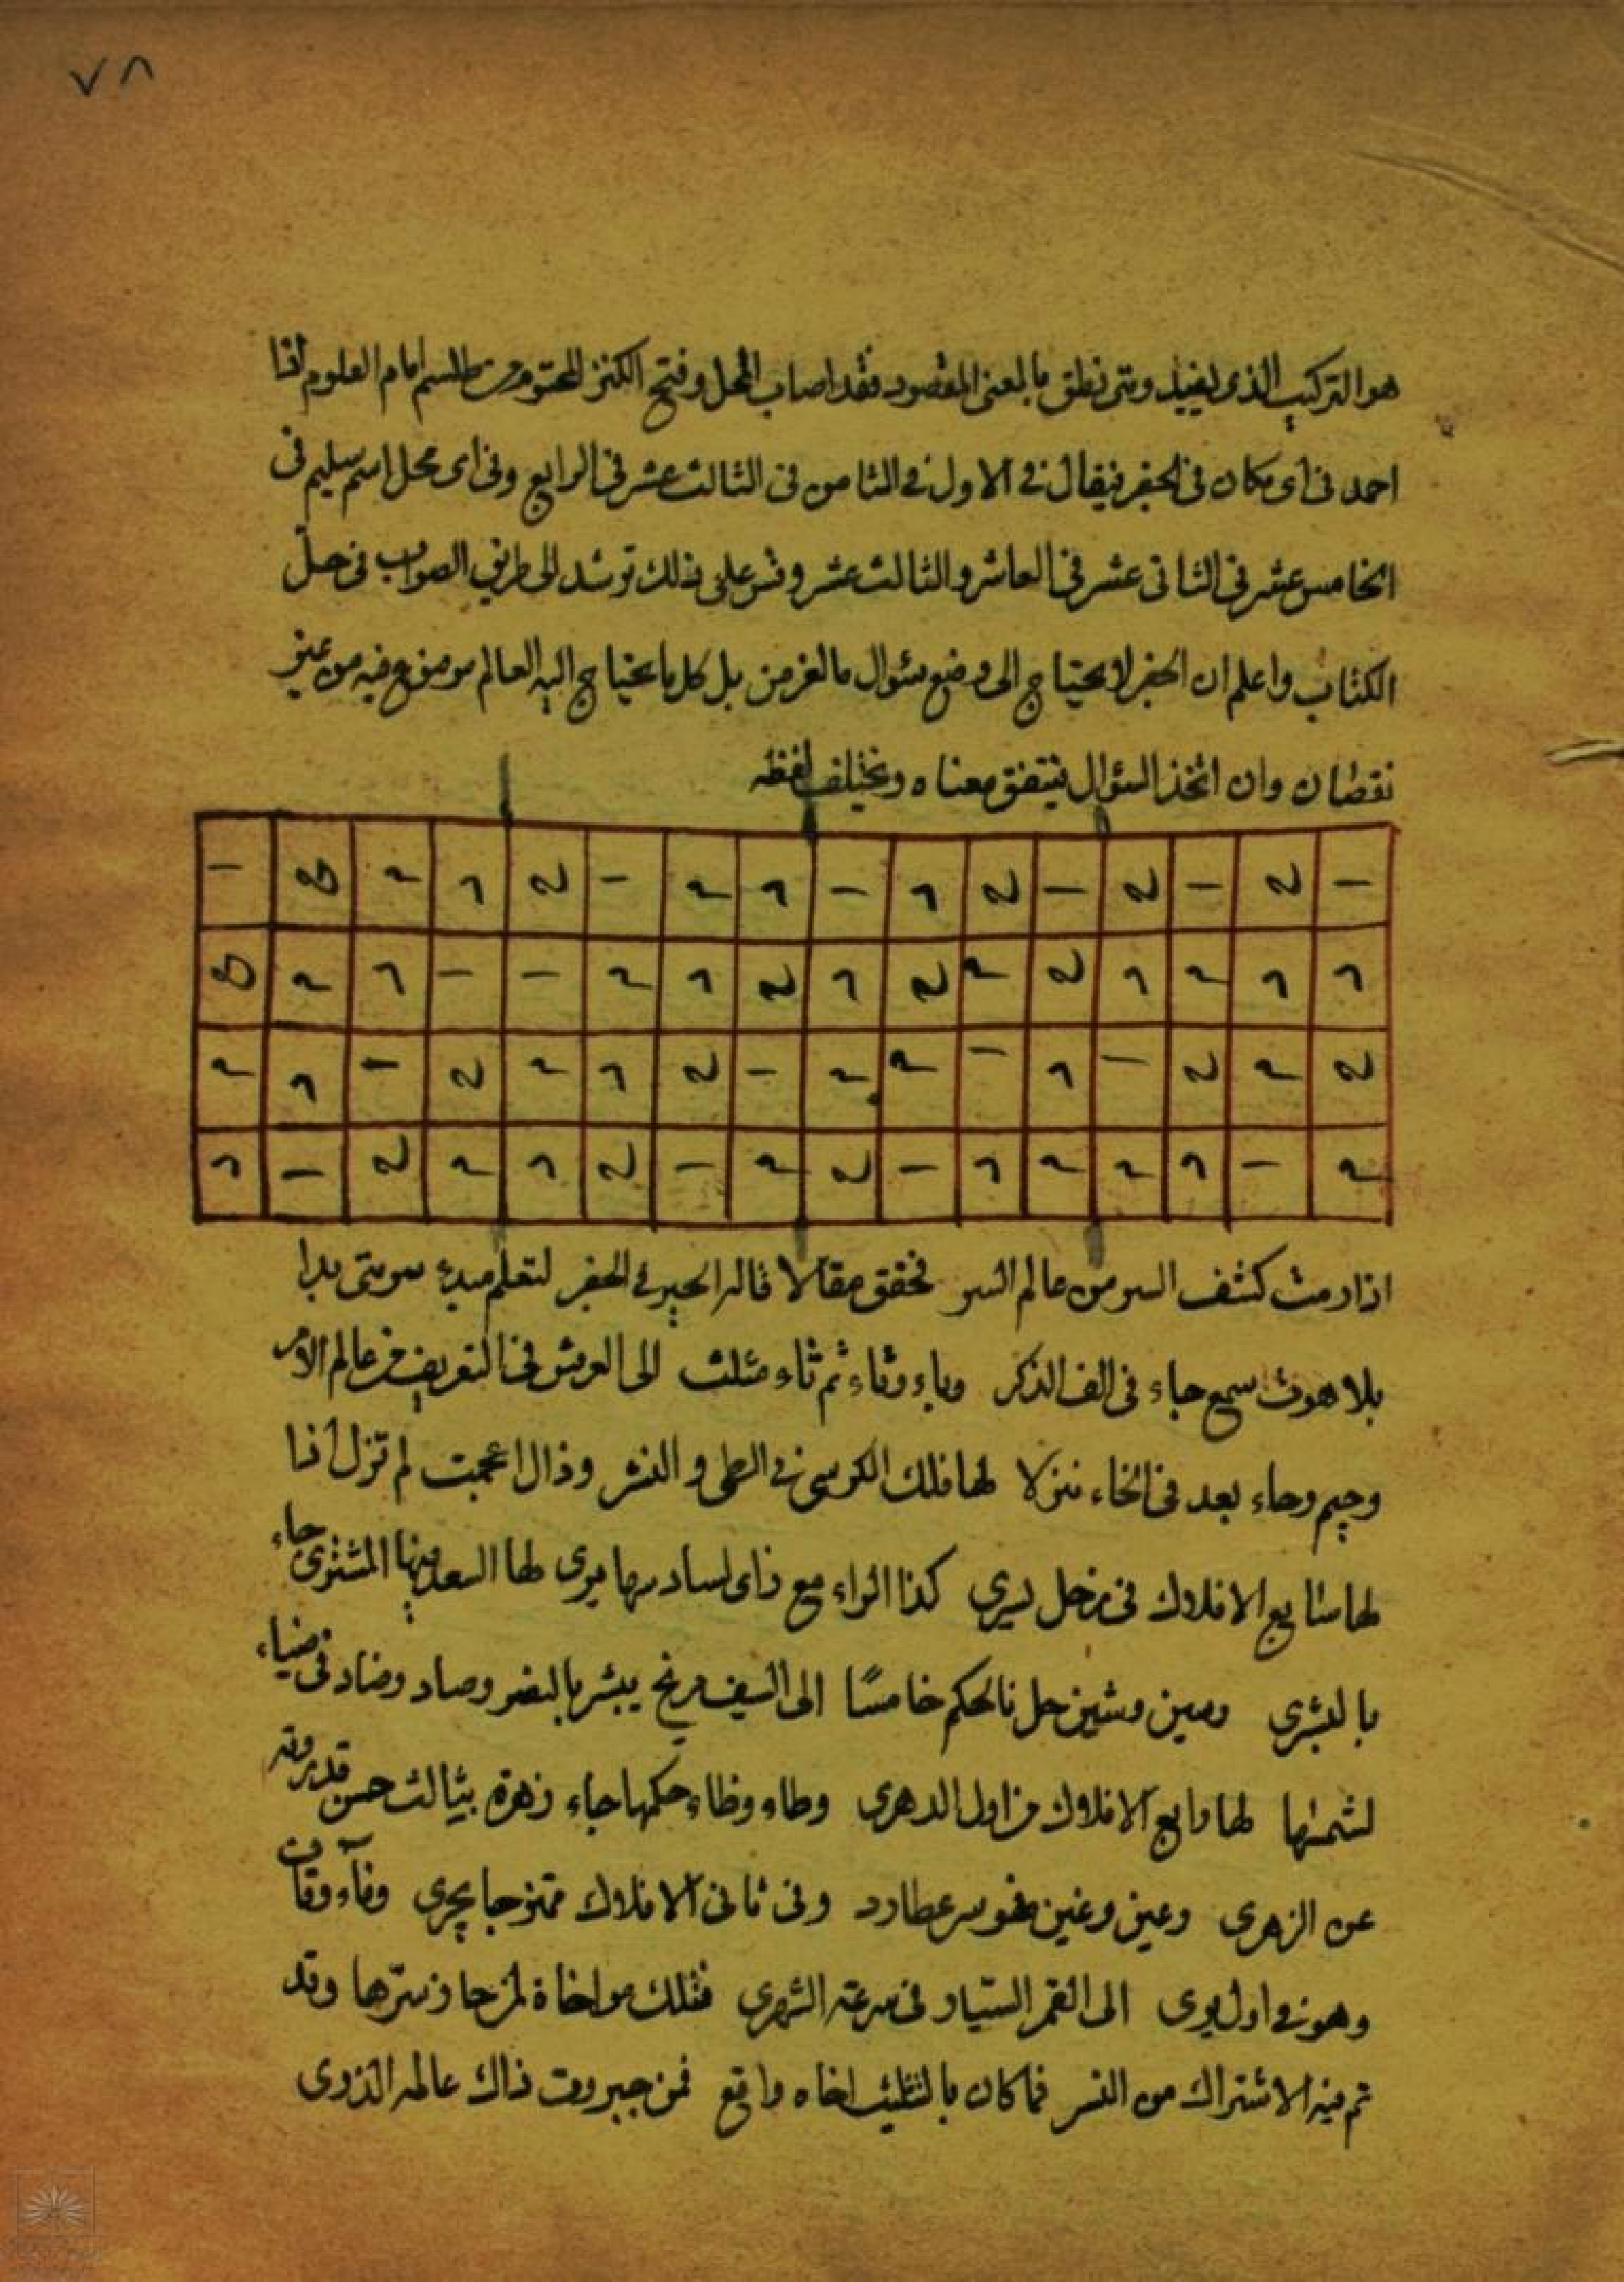 ٧٨
هو التركيب الذى يفيد ومتى نطق بالمعنى المقصود فقد اصاب المحل وفتح الكنز المختوم من طلسم امام العلوم لفا
احمد فى اى مكان فى الجفر فيقال فى الاول فى الثامن فى الثالث عشر فى الرابع وفى اى محل اسم سليم فى
الخامس عشر فى الثانى عشر فى العاشر والثالث عشر وقس على ذلك ترشد الى طريق الصواب فى حلّ
الكتاب واعلم ان الجفر لا يحتاج الى وضع سئوال مالغرض بل كل ما يحتاج اليه العالم موضوع فيه من غير
نقصان وان اتخذ السؤال يتفق معناه ويختلف لفظه
اذا رمت كشف السر من عالم السر فحقق مقالا قاله الحبر فى الجفر لتعلم مبدء سر متى بدا
بلاهوت سمع جاء فى الف الذكر وباء وتاء ثم ثاء مثلث الى العرش فى التعريف من عالم الأمر
وجيم وحاء بعد فى الخاء منزلا لها فلك الكرسى فى الطى والنشر وذال اعجمت لم تزل اذا
لها سابع الافلاك فى زحل يسرى كذا الراء مع زاى لسادسها يرى لها السعد منها المشترى جاء
بالبشرى وسين وشين حل بالحكم خامسًا الى السيف مريخ يبشر بالنصر وصاد وضاد فى ضياء
لشمسها لها رابع الافلاك من اول الدهرى وطاء وظاء حكمها جاء زهرة بثالث حسن قد روته
عن الزهرى وعين وغين نحو سر عطارد وفى ثانى الافلاك ممتزجا يجرى وفاء وقاف
وهو فى اول يرى الى القمر السيّار فى سرعته الشهرى فتلك مواخاة لمزجا وسرّها وقد
تم فيه الاشتراك من السر فما كان بالتثليث اخاه واقع فمن جبروت ذاك عالمه الذروى